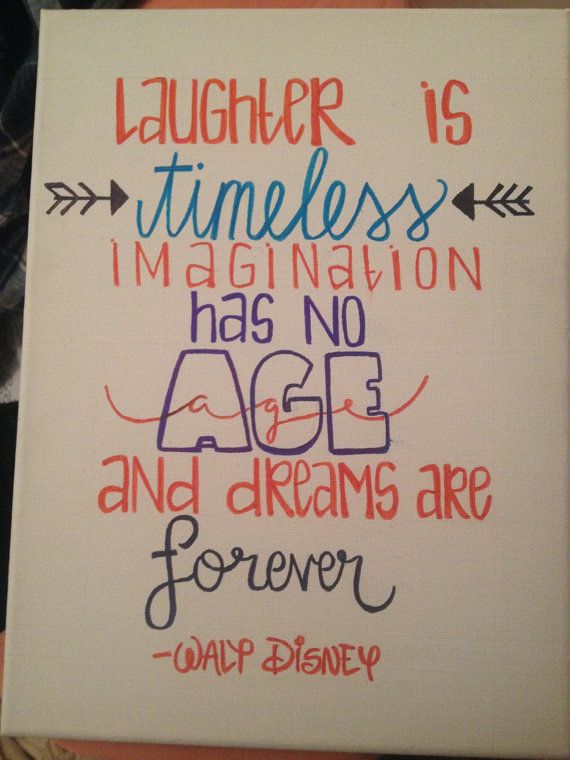 Laughter is
timeless
imagination
has no
AGE
age
and dreams are
forever
-Walt Disney